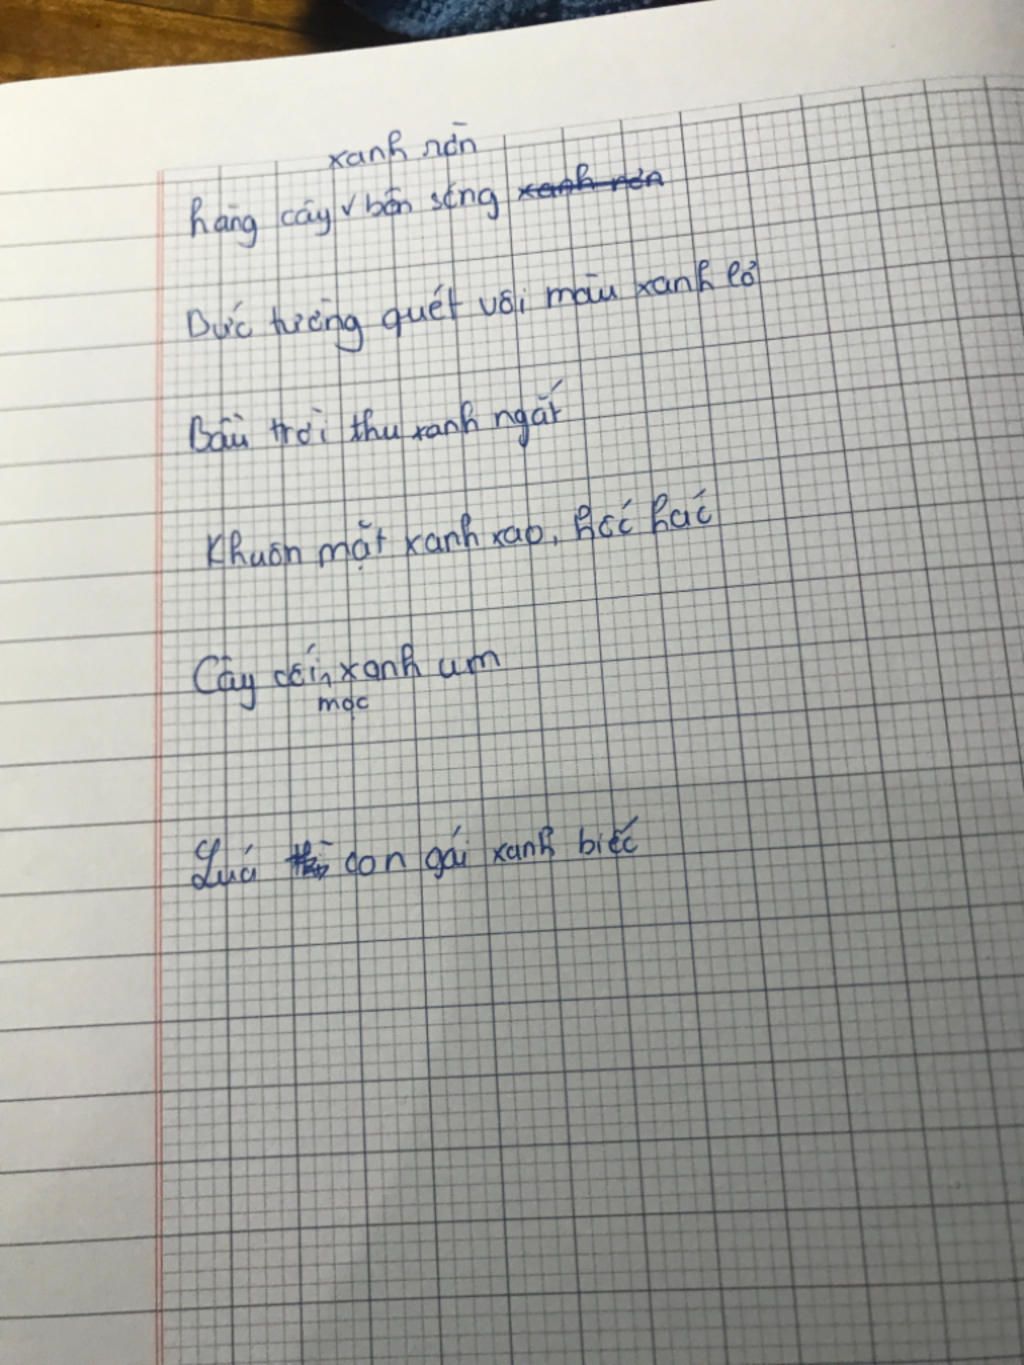 xanh rờn
hàng cây ✓ bên sông xanh rờn
Bức tường quét vôi màu xanh lơ
Bầu trời thu xanh ngắt
Khuôn mặt xanh xao, hốc hác
Cây cối xanh um
mọc
Lúa con gái xanh biếc